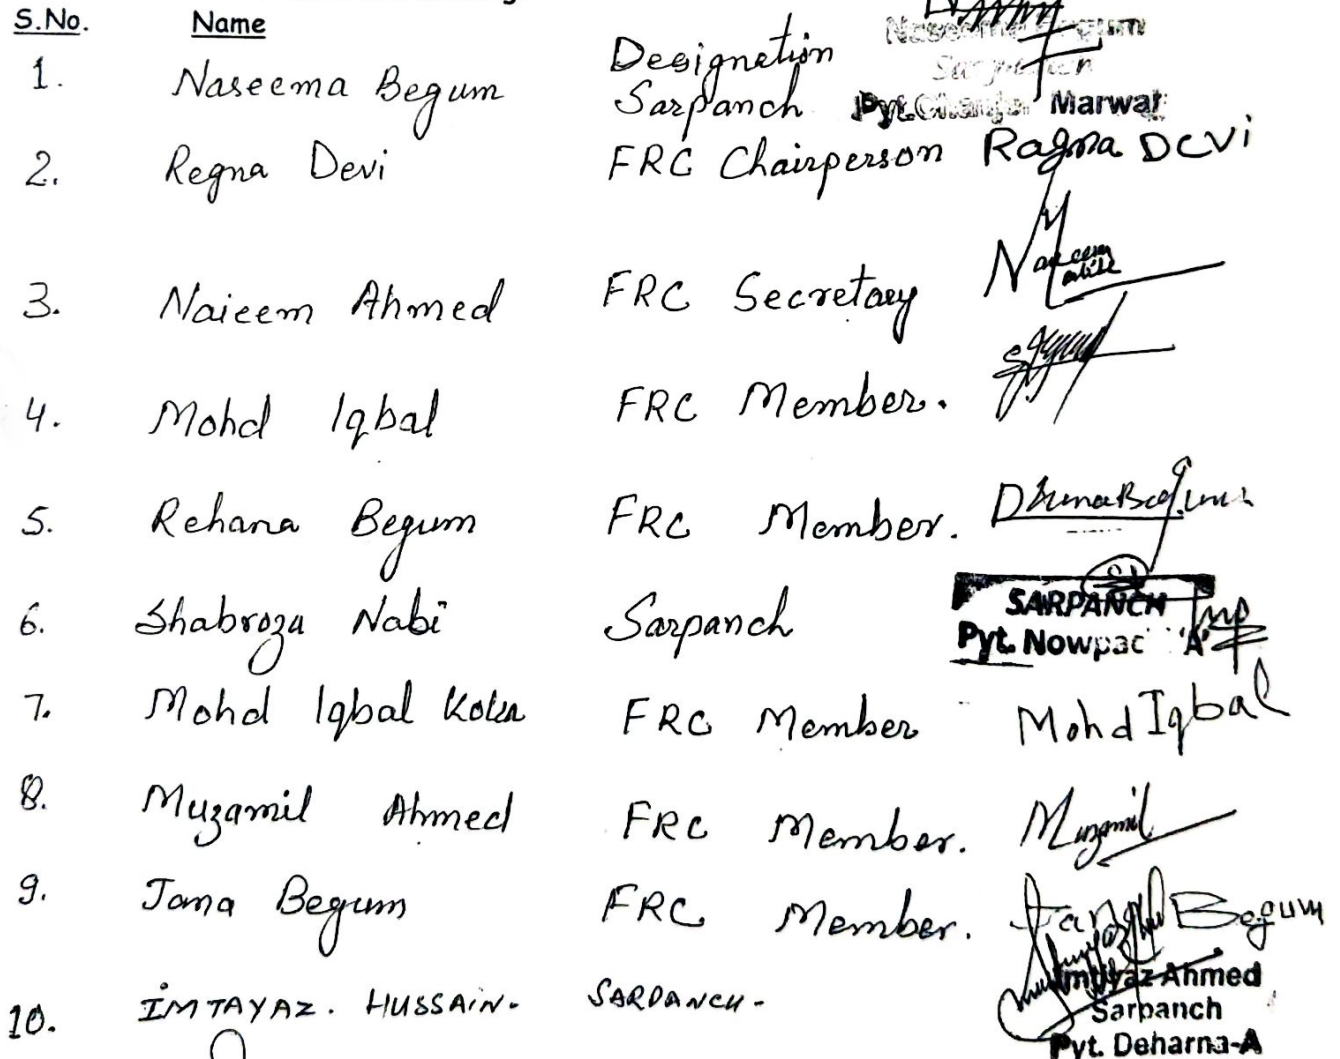 S.No. Name Designation
1. Naseema Begum Sarpanch
Naseema Begum
Sarpanch
Pyt. Marwat
2. Regna Devi FRC Chairperson Ragna Devi
3. Naieem Ahmed FRC Secretary Naeem
4. Mohd Iqbal FRC Member.
5. Rehana Begum FRC Member.
6. Shabroza Nabi Sarpanch
SARPANCH
Pyt. Nowpac 'A'
7. Mohd Iqbal Koka FRC Member Mohd Iqbal
8. Muzamil Ahmed FRC Member. Muzamil
9. Jana Begum FRC Member. Jana Begum
10. IMTAYAZ. HUSSAIN. SARPANCH-
Imtiyaz Ahmed
Sarpanch
Pyt. Deharna-A